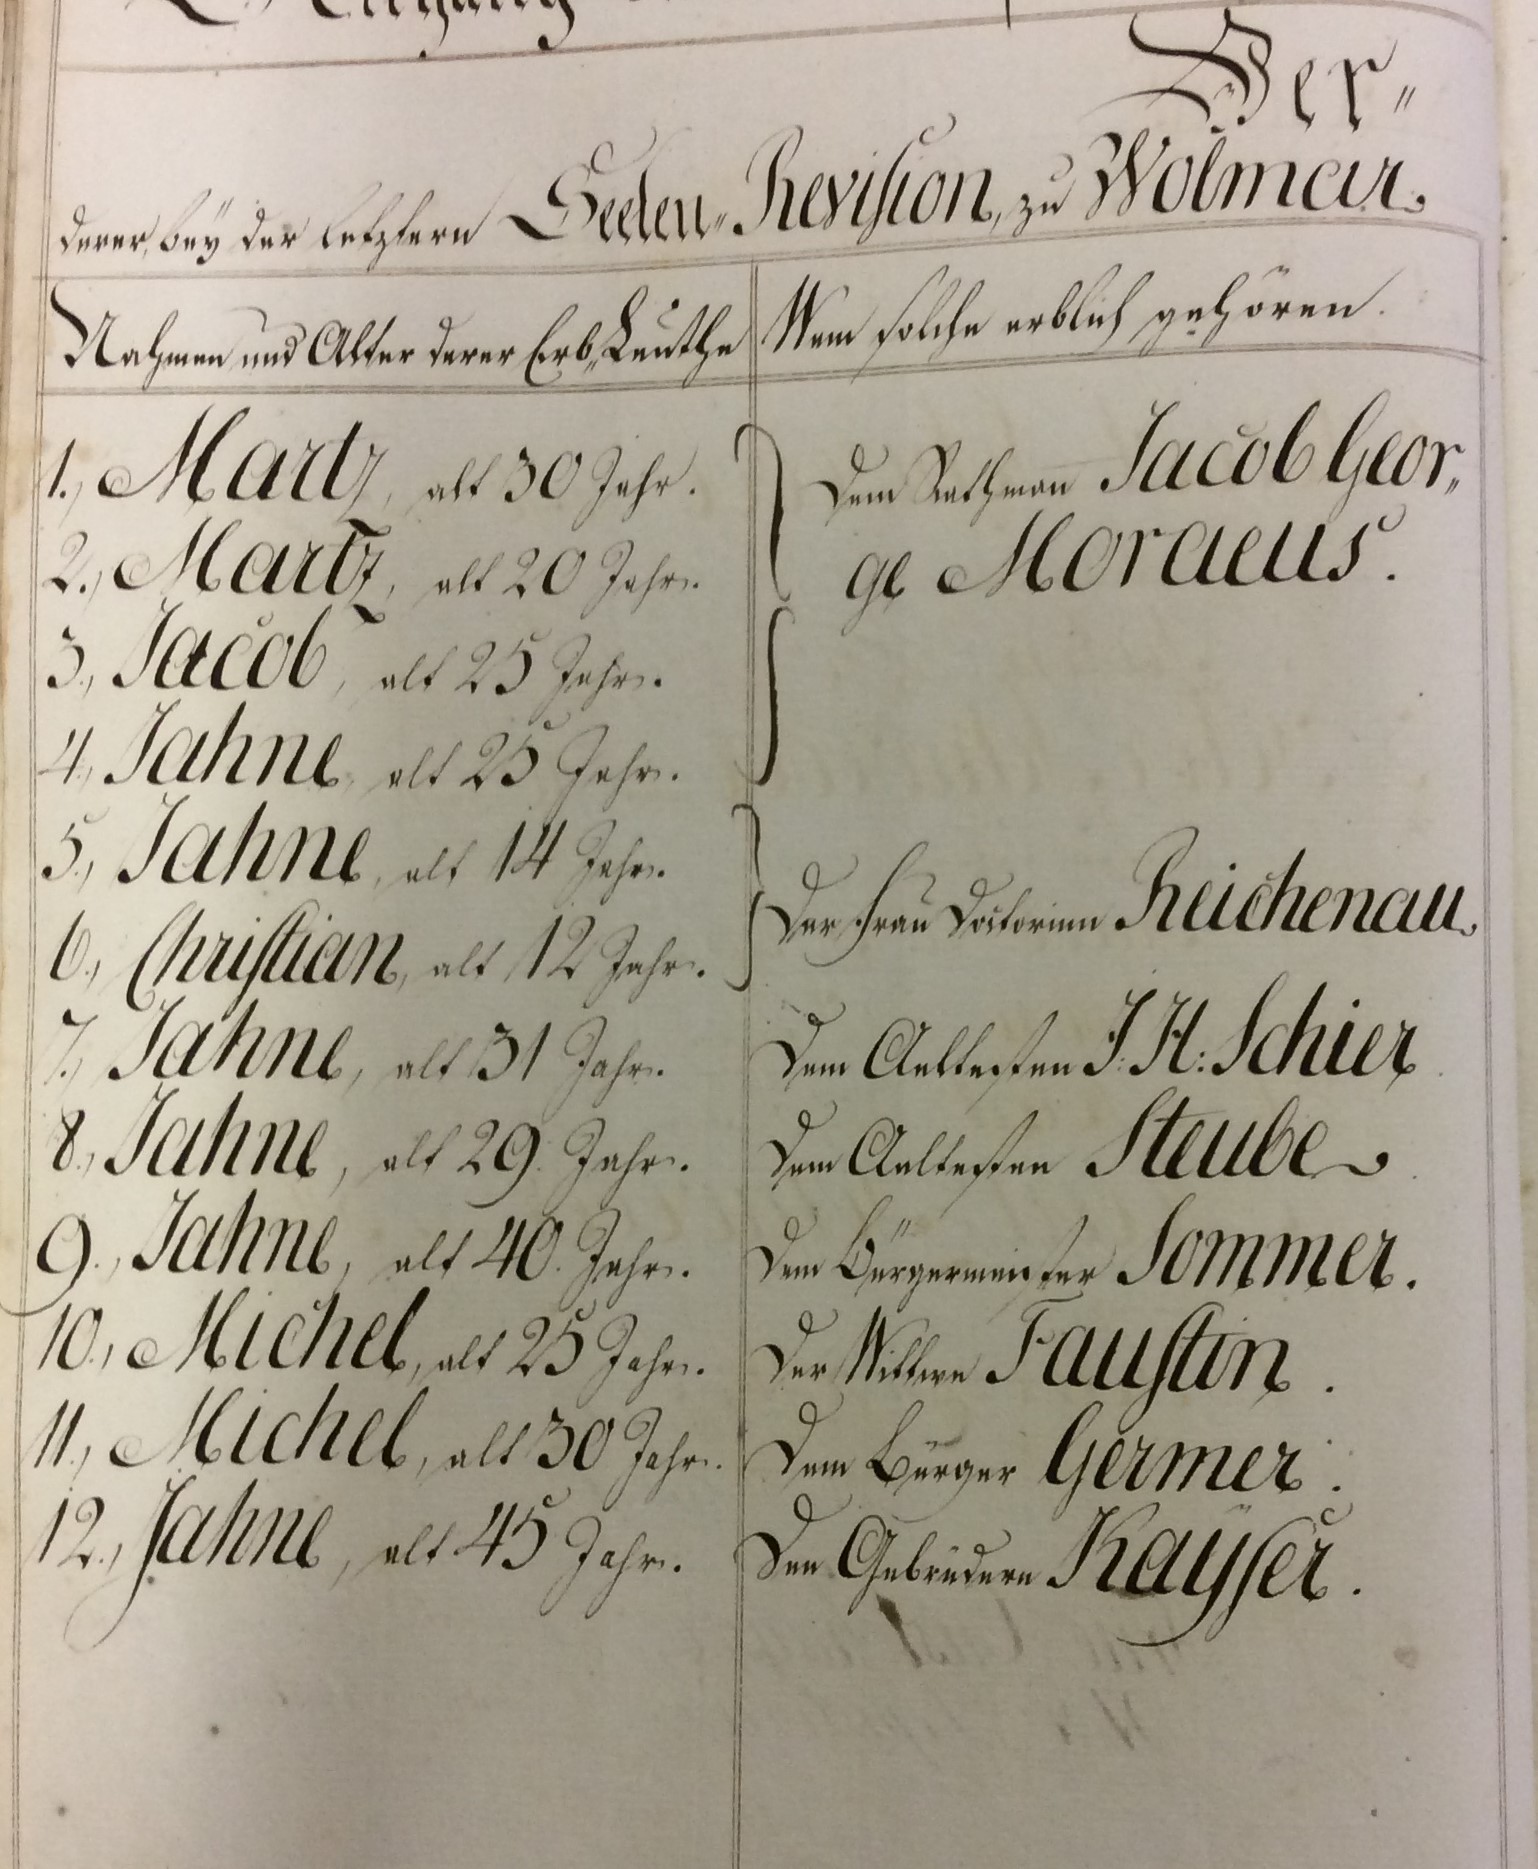 Ver=
derer, bey der letztern Seelen=Revision, zu Wolmar.
Nahmen und Alter derer Erb=Leuthe
Wem solche erblich gehören.
1., Martz, alt 30 Jahr.
2., Martz, alt 20 Jahr.
3., Jacob, alt 25 Jahr.
4., Jahne, alt 25 Jahr.
Dem Rathman Jacob Geor=
ge Moraeus.
5., Jahne, alt 14 Jahr.
6., Christian, alt 12 Jahr.
Der Frau Doctorinn Reichenau.
7., Jahne, alt 31 Jahr.
Dem Aeltesten J: H: Schier
8., Jahne, alt 29. Jahr.
Dem Aeltesten Steube
9., Jahne, alt 40. Jahr.
Dem Bürgermeister Sommer.
10., Michel, alt 25 Jahr.
Der Wittwe Faustin.
11., Michel, alt 30 Jahr.
Dem Bürger Germer.
12., Jahne, alt 45 Jahr.
Den Gebrüdern Kayser.